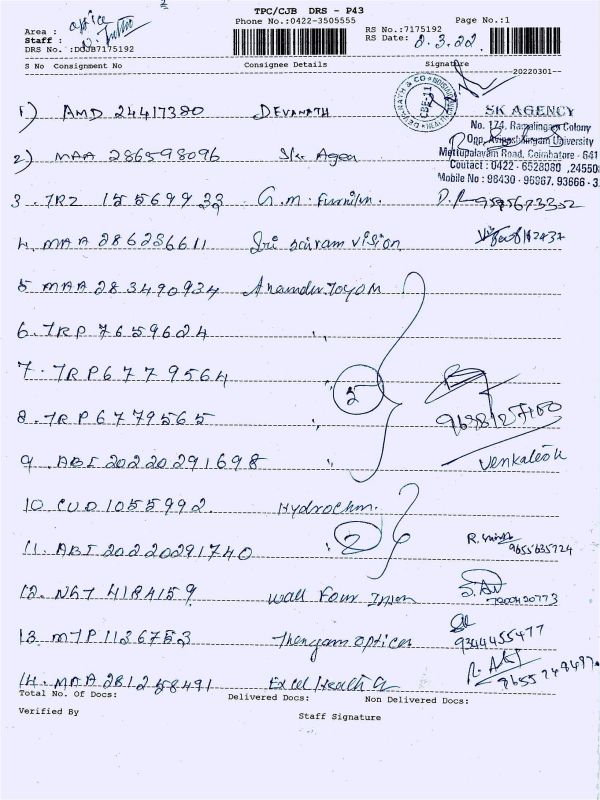 TPC/CJB DRS - P43
Phone No.:0422-3505555 Page No.:1
office
Area :
Staff :
RS No.:7175192
DRS No. :DCJB7175192
RS Date: 2.3.22.
S No Consignment No Consignee Details Signature
20220301--
1) AMD 24417380 DEVANATH
DEVANATH & CO
CBE-11
SK AGENCY
No. 174, Ramalingam Colony
Opp. Avinashilingam University
Mettupalayam Road, Coimbatore - 641
Contact : 0422 - 6528080 ,245508
Mobile No : 98430 - 96967, 93666 - 3
2) MAA 286598096 Sk Agen
3. TRZ 15569933 G.M. Furnitur. 9595673352
4. MAA 286236611 Sri Sairam vision
5. MAA 283490934 Anamder TOYOM
6. TRP 7659624 "
7. TRP 6779564 "
5
8. TRP 6779565 "
9. ABI 20220291698 "
Venkatesh
10. CUD 1055992. Hydrochm.
2
11. ABI 20220291740 "
R.
9655635724
12. NGT 4184159 Wall Four Inten
7200420773
13. MTP 1136753 Thengam opticer 9344455477
14. MAA 281258491 Excel Health G
9655249497.
Total No. Of Docs: Delivered Docs: Non Delivered Docs:
Verified By Staff Signature